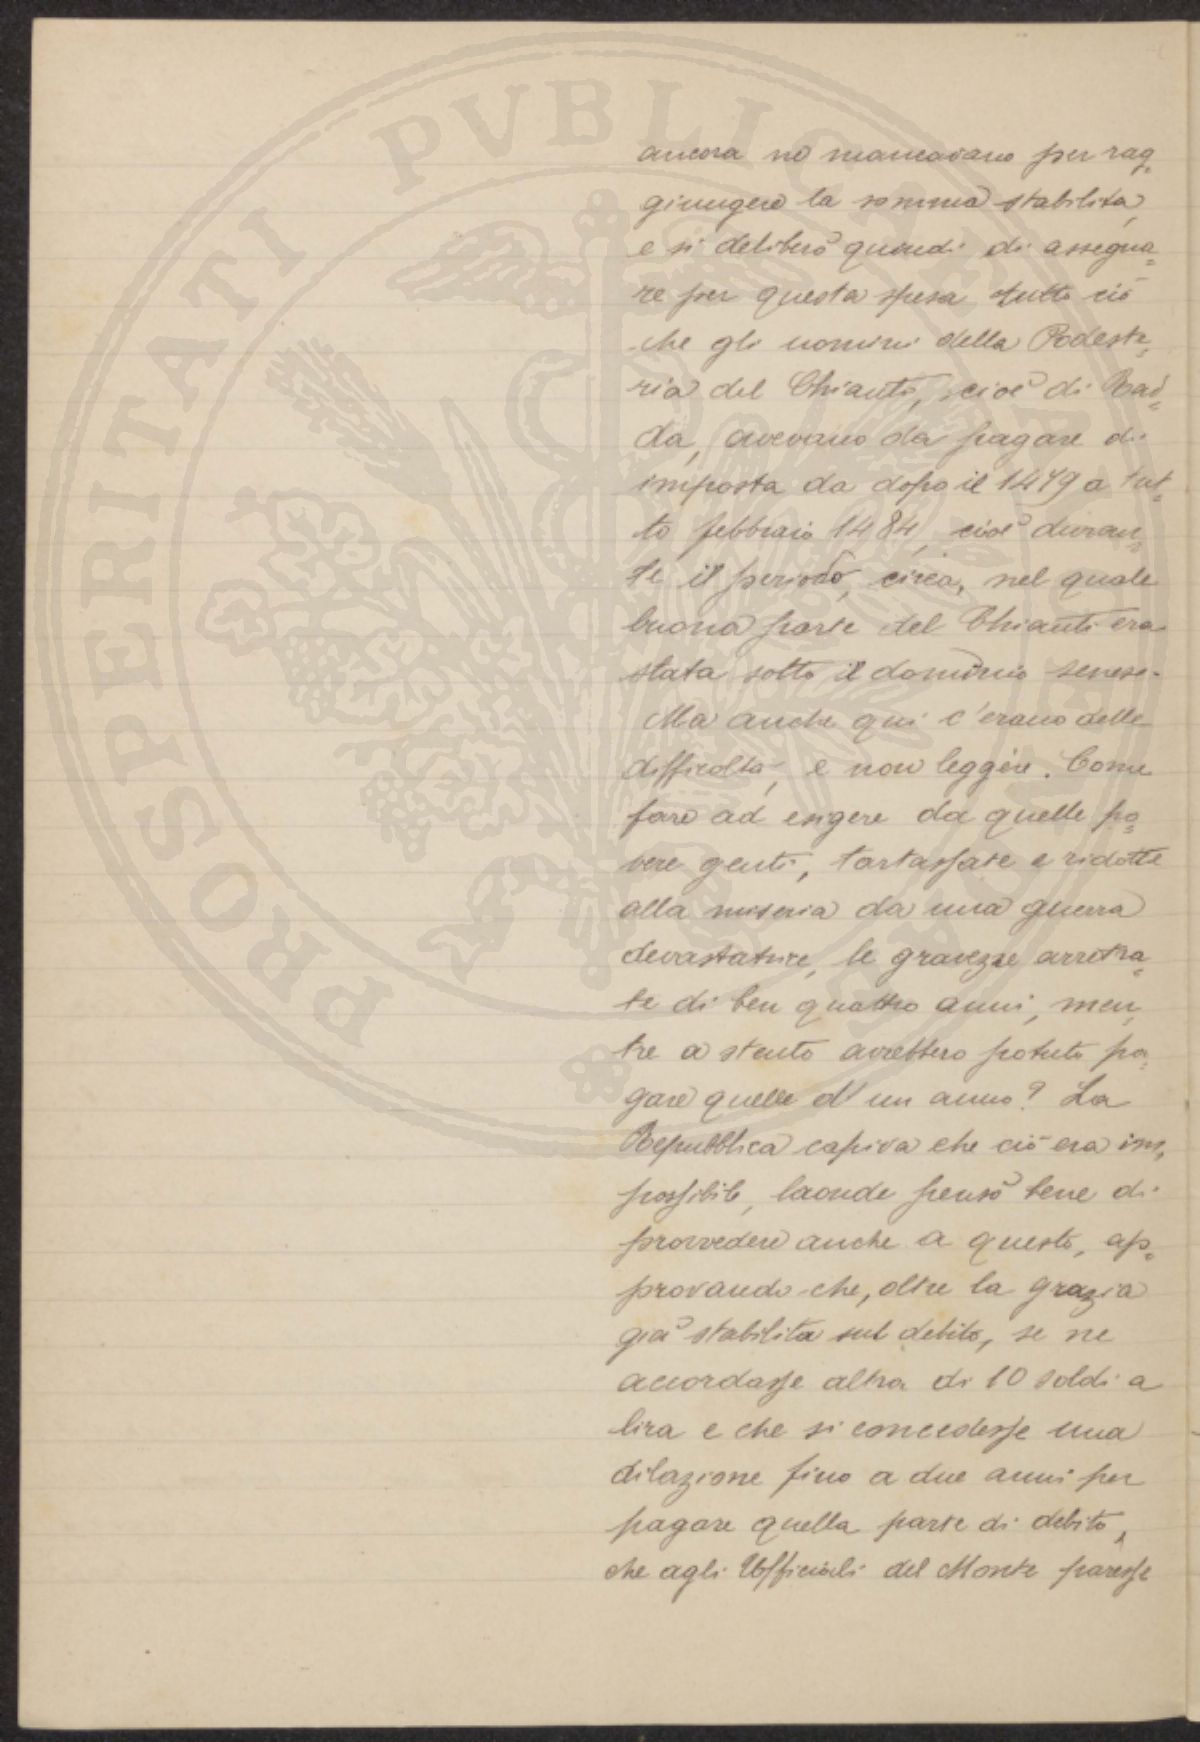 PROSPERITATI PVBLICAE
ancora ne mancavano per rag=
giungere la somma stabilita,
e si deliberò quindi di assegna=
re per questa spesa tutto ciò
che gli uomini della Podeste=
ria del Chianti, cioè di Rad=
da, avevano da pagare di
imposta da dopo il 1479 a tut=
to febbraio 1484, cioè duran=
te il periodo, circa, nel quale
buona parte del Chianti era
stata sotto il dominio senese.
Ma anche qui c'erano delle
difficoltà, e non leggère. Come
fare ad esigere da quelle po=
vere genti, tartassate e ridotte
alla miseria da una guerra
devastatrice, le gravezze arretra=
te di ben quattro anni, men=
tre a stento avrebbero potuto pa=
gare quelle d'un anno? La
Repubblica capiva che ciò era im=
possibile, laonde pensò bene di
provvedere anche a questo, ap=
provando che, oltre la grazia
già stabilita sul debito, se ne
accordasse altra di 10 soldi a
lira e che si concedesse una
dilazione fino a due anni per
pagare quella parte di debito,
che agli Ufficiali del Monte paresse